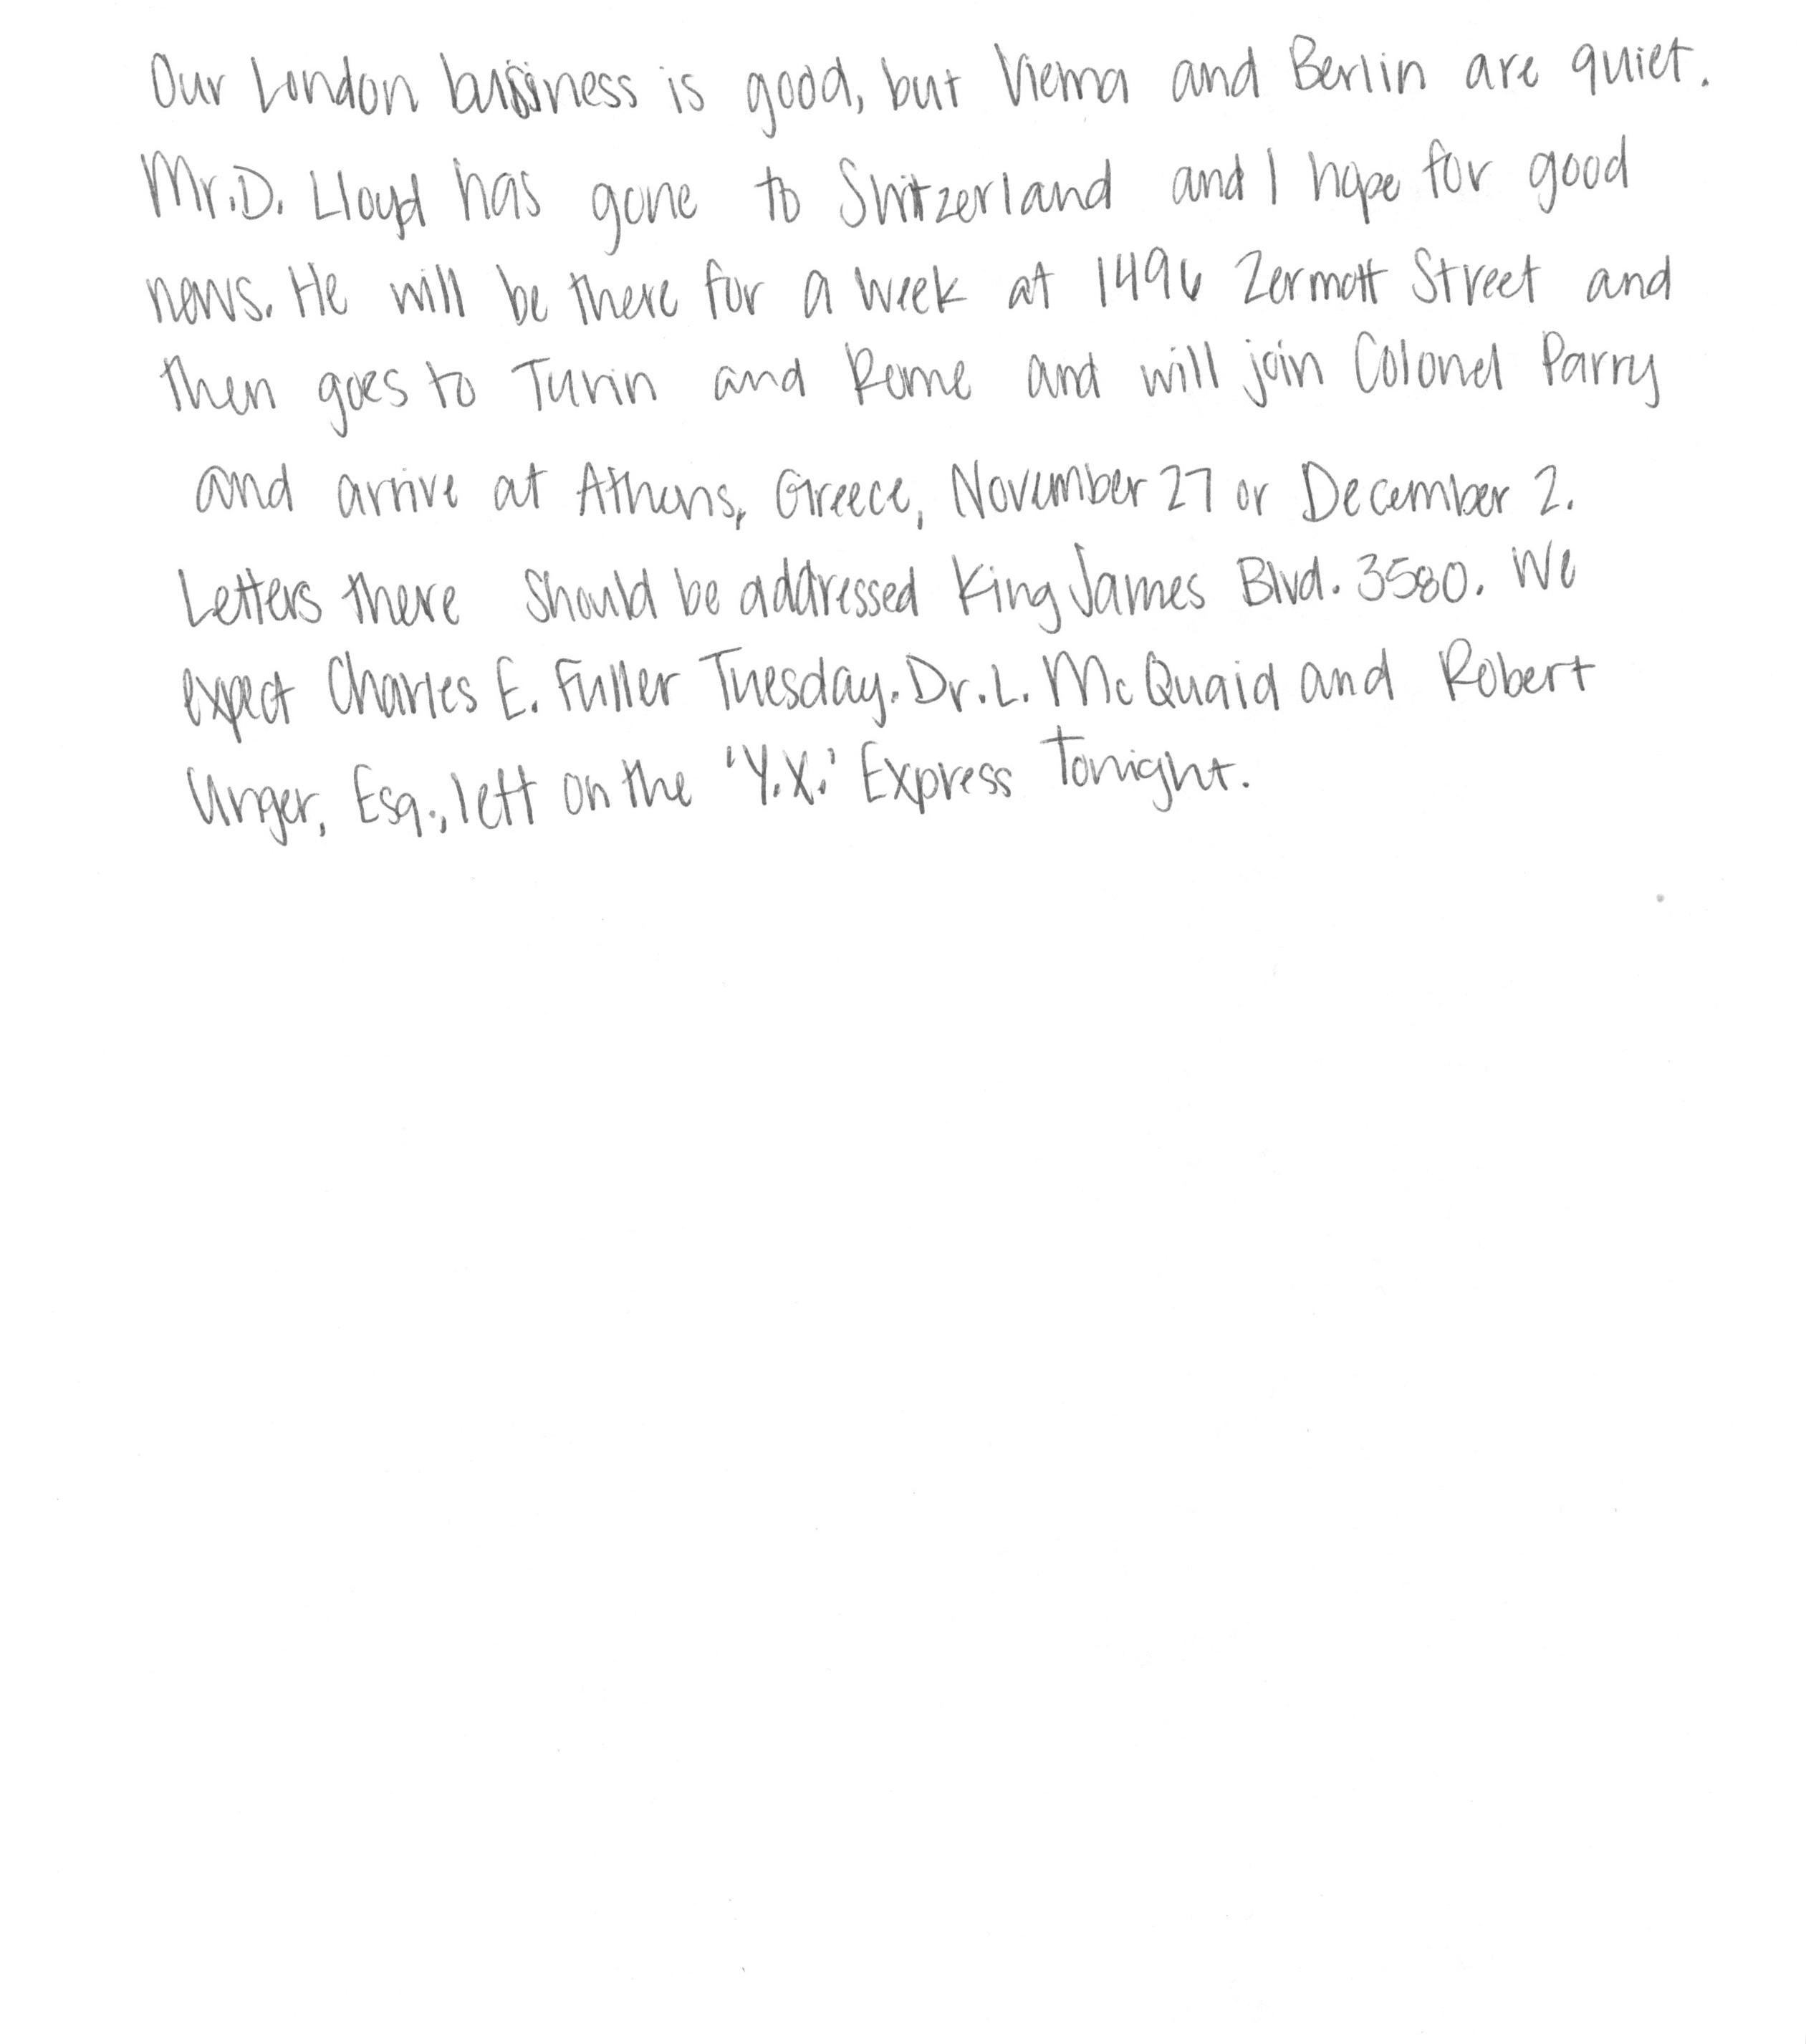 Our London business is good, but Vienna and Berlin are quiet.
Mr. D. Lloyd has gone to Switzerland and I hope for good
news. He will be there for a week at 1496 Zermott Street and
then goes to Turin and Rome and will join Colonel Parry
and arrive at Athens, Greece, November 27 or December 2.
Letters there should be addressed King James Blvd. 3580. We
expect Charles E. Fuller Tuesday. Dr. L. McQuaid and Robert
Unger, Esq., left on the 'Y.X.' Express Tonight.